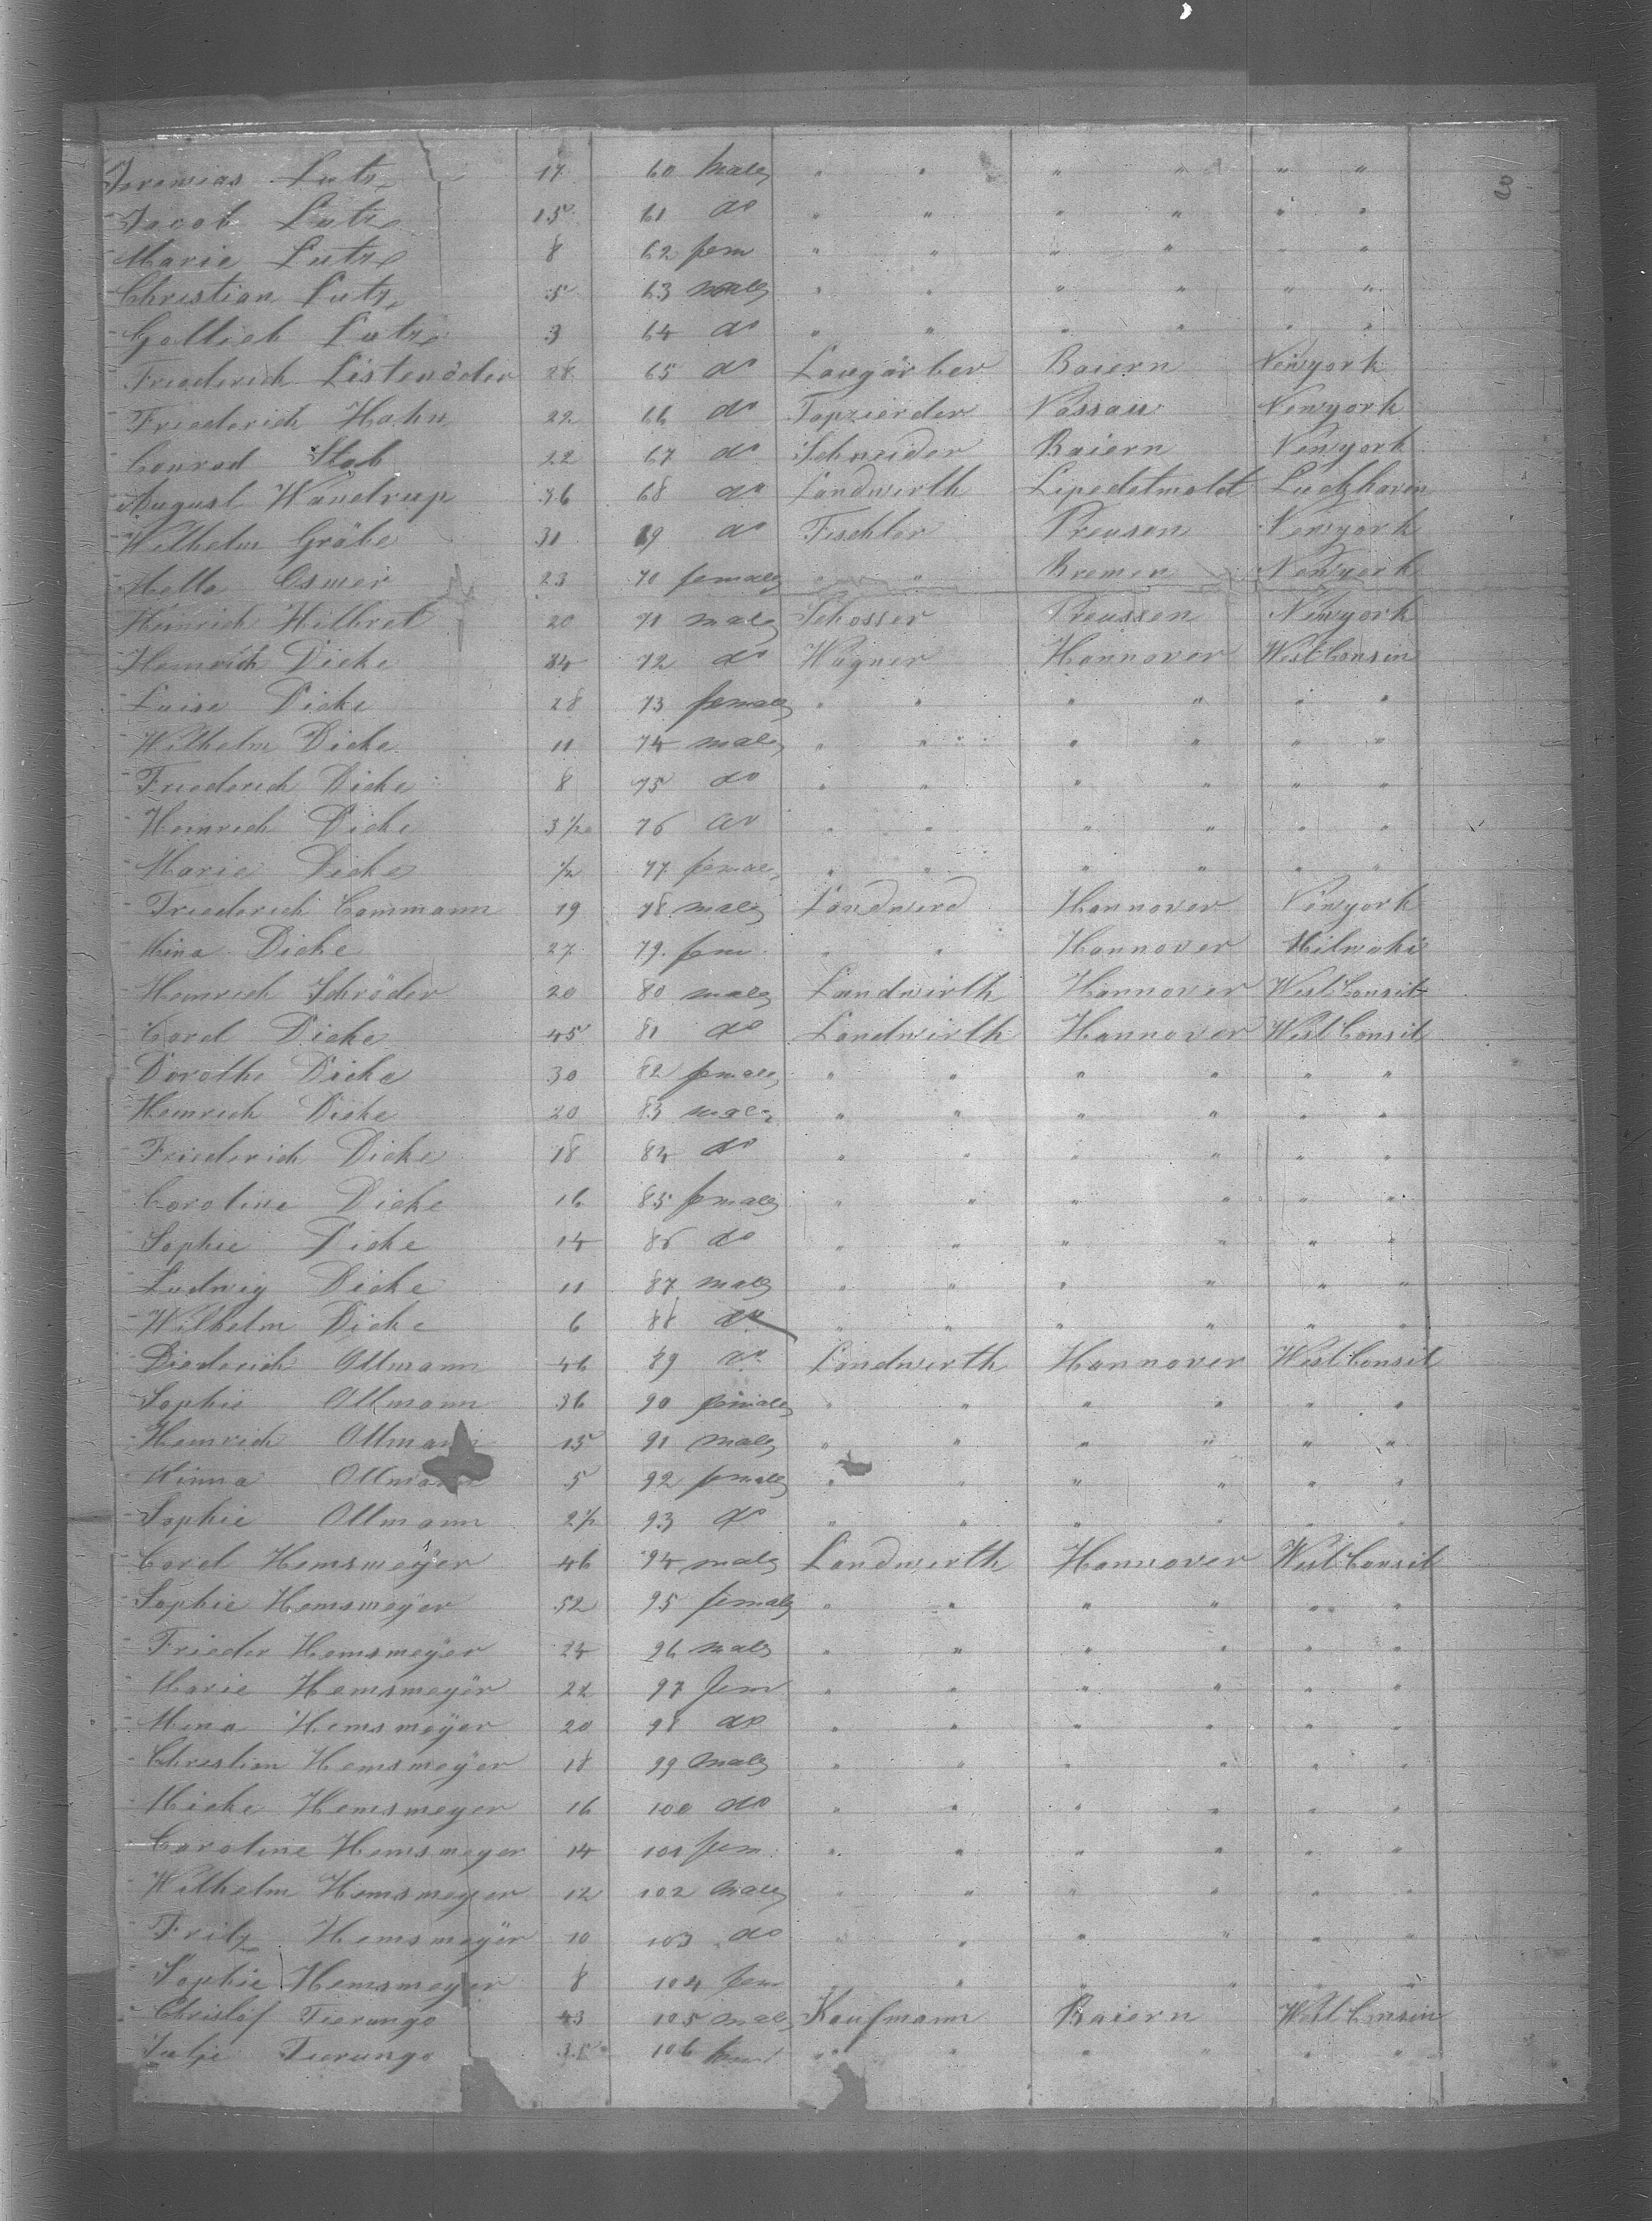 Jeremias Lutz 17 60 male " " " " " "
Jacob Lutz 15 61 do " " " " " "
Marie Lutz 8 62 fem " " " " " "
Christian Lutz 5 63 male " " " " " "
Gottlieb Lutz 3 64 do " " " " " "
Friederich Listenöder 28 65 do Lougärber Baiern Newyork
Friederich Hahn 22 66 do Tapzierder Nassau Newyork
Conrad Stab 22 67 do Schneider Baiern Newyork
August Wandtrup 36 68 do Landwirth Lipedetmoldt
Wilhelm Gräbe 31 69 do Tischler Preusen Newyork
Osmer 23 70 female " " Bremen Newyork
Heinrich Hilbret 20 71 male Schosser Preussen Newyork
Heinrich Dicke 34 72 do Wagner Hannover West Consin
Luise Dicke 28 73 female " " " " " "
Wilhelm Dicke 11 74 male " " " " " "
Friederich Dicke 8 75 do " " " " " "
Heinrich Dicke 3 1/2 76 do " " " " " "
Marie Dicke 1/2 77 female " " " " " "
Friederich Commann 19 78 male Landwird Hannover Newyork
Mina Dicke 27 79 fem " " Hannover Milwaki
Heinrich Schröder 20 80 male Landwirth Hannover West Consit
Cord Dicke 45 81 do Landwirth Hannover West Consit
Dorothe Dicke 30 82 female " " " " " "
Heinrich Dicke 20 83 male " " " " " "
Friederich Dicke 18 84 do " " " " " "
Caroline Dicke 16 85 female " " " " " "
Sophie Dicke 14 86 do " " " " " "
Ludwig Dicke 11 87 male " " " " " "
Wilhelm Dicke 6 88 do " " " " " "
Diederich Ollmann 46 89 do Landwirth Hannover West Consit
Sophie Ollmann 36 90 female " " " " " "
Heinrich Ollmann 15 91 male " " " " " "
Minna Ollmann 5 92 female " " " " " "
Sophie Ollmann 2 1/2 93 do " " " " " "
Cord Hemsmeÿer 46 94 male Landwirth Hannover West Consit
Sophie Hemsmeÿer 52 95 female " " " " " "
Frieder Hemsmeÿer 24 96 male " " " " " "
Marie Hemsmeÿer 22 97 fem " " " " " "
Mina Hemsmeÿer 20 98 do " " " " " "
Christian Hemsmeÿer 18 99 male " " " " " "
Micke Hemsmeyer 16 100 do " " " " " "
Caroline Hemsmeyer 14 101 fem " " " " " "
Wilhelm Hemsmeyer 12 102 male " " " " " "
Fritz Hemsmeÿer 10 103 do " " " " " "
Sophie Hemsmeyer 8 104 fem " " " " " "
Christof Tierunge 43 105 male Kaufmann Baiern West Consin
Tierunge 106 " " " " " "